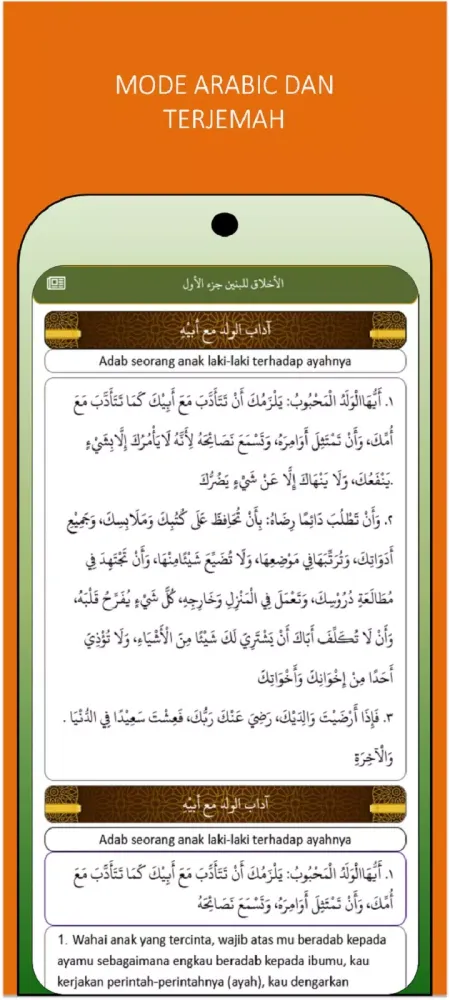 MODE ARABIC DAN
TERJEMAH
الأخلاق للبنين جزء الأول
آدَابُ الوَلَدِ مَعَ أَبِيْهِ
Adab seorang anak laki-laki terhadap ayahnya
١. أَيُّهَاالْوَلَدُ الْمَحْبُوبُ: يَلْزَمُكَ أَنْ تَتَأَدَّبَ مَعَ أَبِيكَ كَمَا تَتَأَدَّبَ مَعَ
أُمِّكَ، وَأَنْ تَمْتَثِلَ أَوَامِرَهُ، وَتَسْمَعَ نَصَائِحَهُ لِأَنَّهُ لَا يَأْمُرُكَ إِلَّابِشَيْءٍ
.يَنْفَعُكَ، وَلَا يَنْهَاكَ إِلَّا عَنْ شَيْءٍ يَضُرُّكَ
٢. وَأَنْ تَطْلُبَ دَائِمًا رِضَاهُ: بِأَنْ تُحَافِظَ عَلَى كُتُبِكَ وَمَلَابِسِكَ، وَجَمِيْعِ
أَدَوَاتِكَ، وَتُرَتِّبَهَافِي مَوْضِعِهَا، وَلَا تُضَيِّعَ شَيْئًامِنْهَا، وَأَنْ تَجْتَهِدَ فِي
مُطَالَعَةِ دُرُوْسِكَ، وَتَعْمَلَ فِي الْمَنْزِلِ وَخَارِجِهِ، كُلَّ شَيْءٍ يُفَرِّحُ قَلْبَهُ،
وَأَنْ لَا تُكَلِّفَ أَبَاكَ أَنْ يَشْتَرِيَ لَكَ شَيْئًا مِنَ الْأَشْيَاءِ، وَلَا تُؤْذِيَ
أَحَدًا مِنْ إِخْوَانِكَ وَأَخْوَاتِكَ
٣. فَإِذَا أَرْضَيْتَ وَالِدَيْكَ، رَضِيَ عَنْكَ رَبُّكَ، فَعِشْتَ سَعِيْدًا فِي الدُّنْيَا .
وَالْآخِرَةِ
آدَابُ الوَلَدِ مَعَ أَبِيْهِ
Adab seorang anak laki-laki terhadap ayahnya
١. أَيُّهَاالْوَلَدُ الْمَحْبُوبُ: يَلْزَمُكَ أَنْ تَتَأَدَّبَ مَعَ أَبِيكَ كَمَا تَتَأَدَّبَ مَعَ
أُمِّكَ، وَأَنْ تَمْتَثِلَ أَوَامِرَهُ، وَتَسْمَعَ نَصَائِحَهُ
1. Wahai anak yang tercinta, wajib atas mu beradab kepada
ayamu sebagaimana engkau beradab kepada ibumu, kau
kerjakan perintah-perintahnya (ayah), kau dengarkan